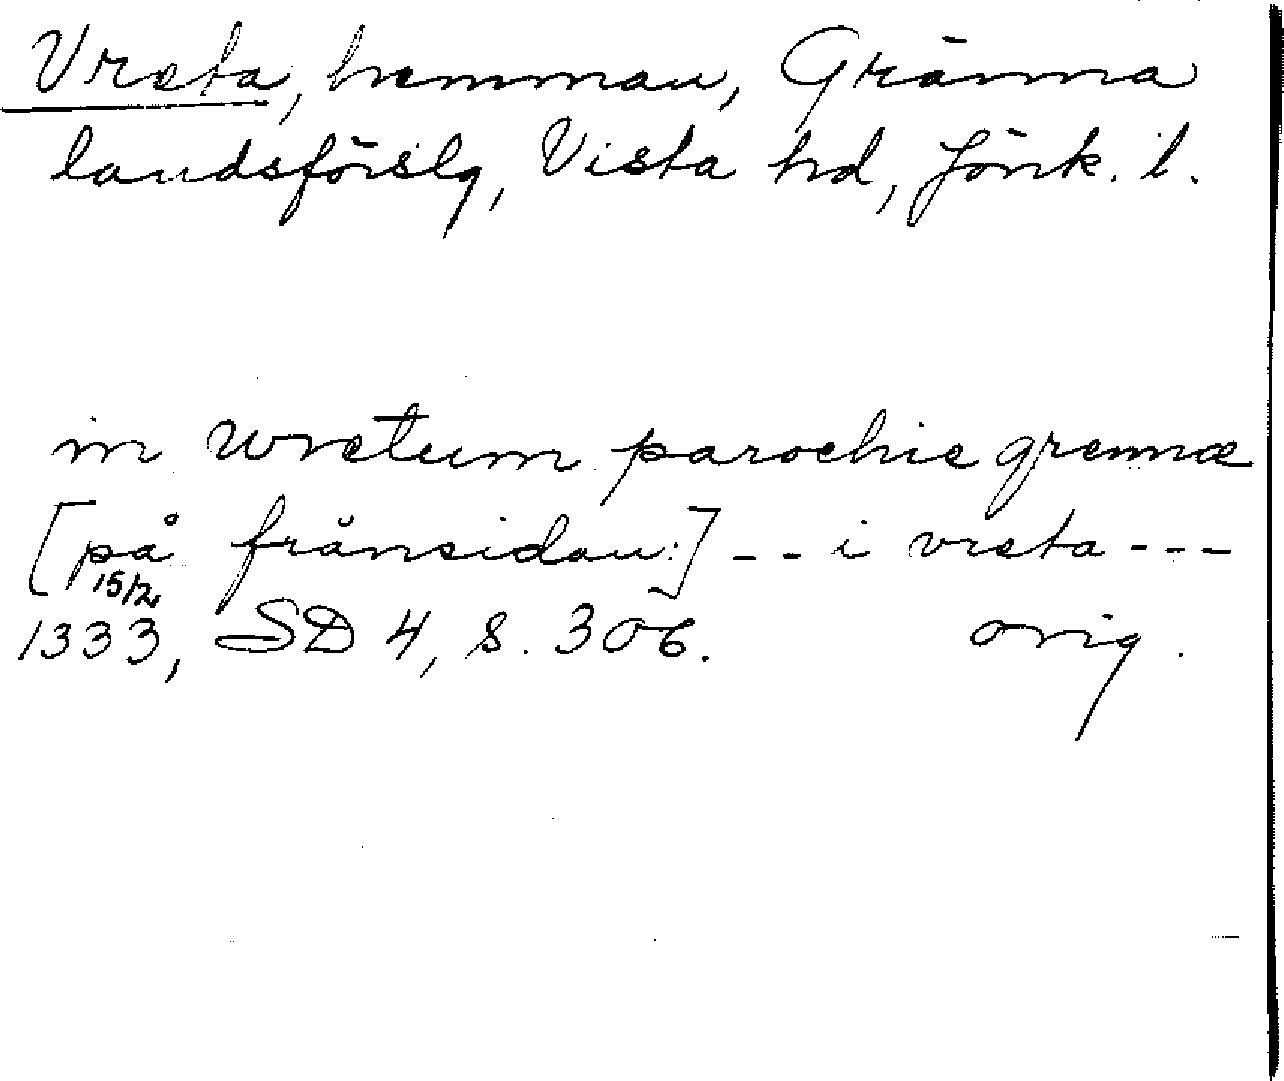 Vreta, hemman, Gränna
landsförslg, Vista hd, Jönk. l.
in wretum parochie grennæ
[på frånsidan:] - - i vreta - - -
15/2
1333, SD 4, s. 306. orig.